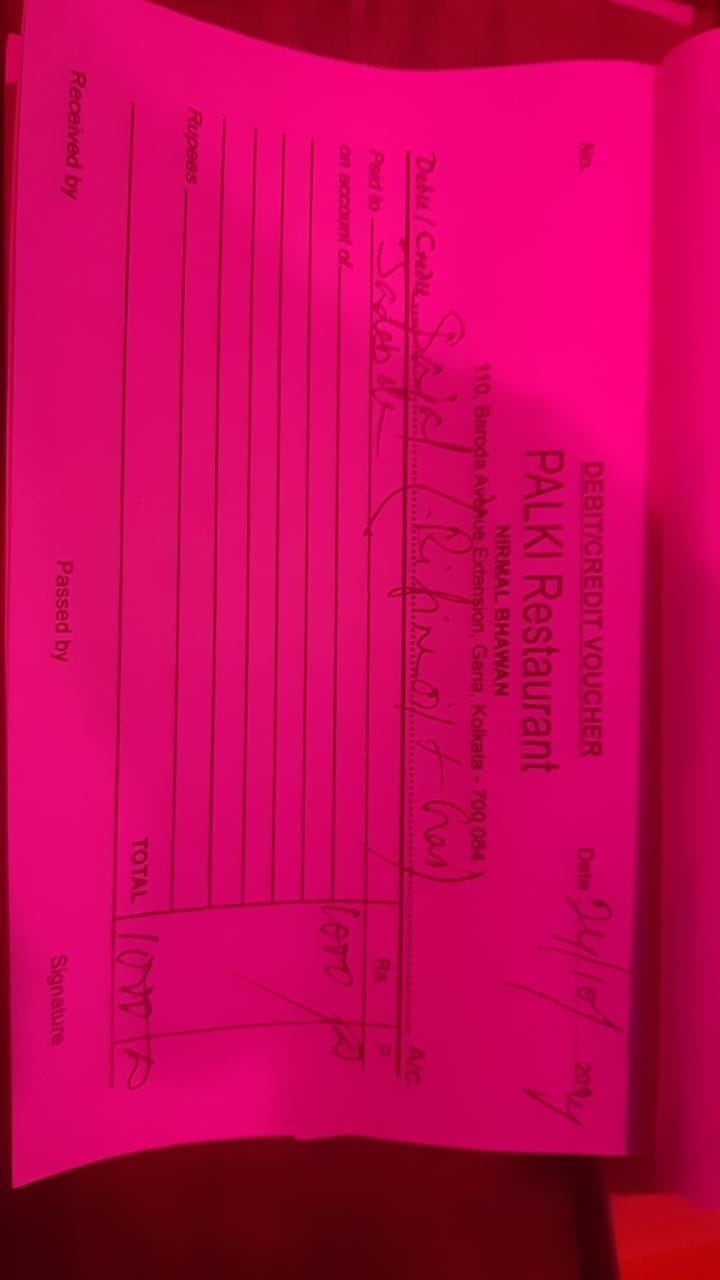 DEBIT/CREDIT VOUCHER
No. Date 24/10/ 2024
PALKI Restaurant
NIRMAL BHAWAN
110, Baroda Avenue Extension, Garia, Kolkata - 700 084
Debit / Credit Sajal ( + Gas) A/c.
Paid to Rs. P
on account of 1000
Rupees
TOTAL 1000
Received by Passed by Signature